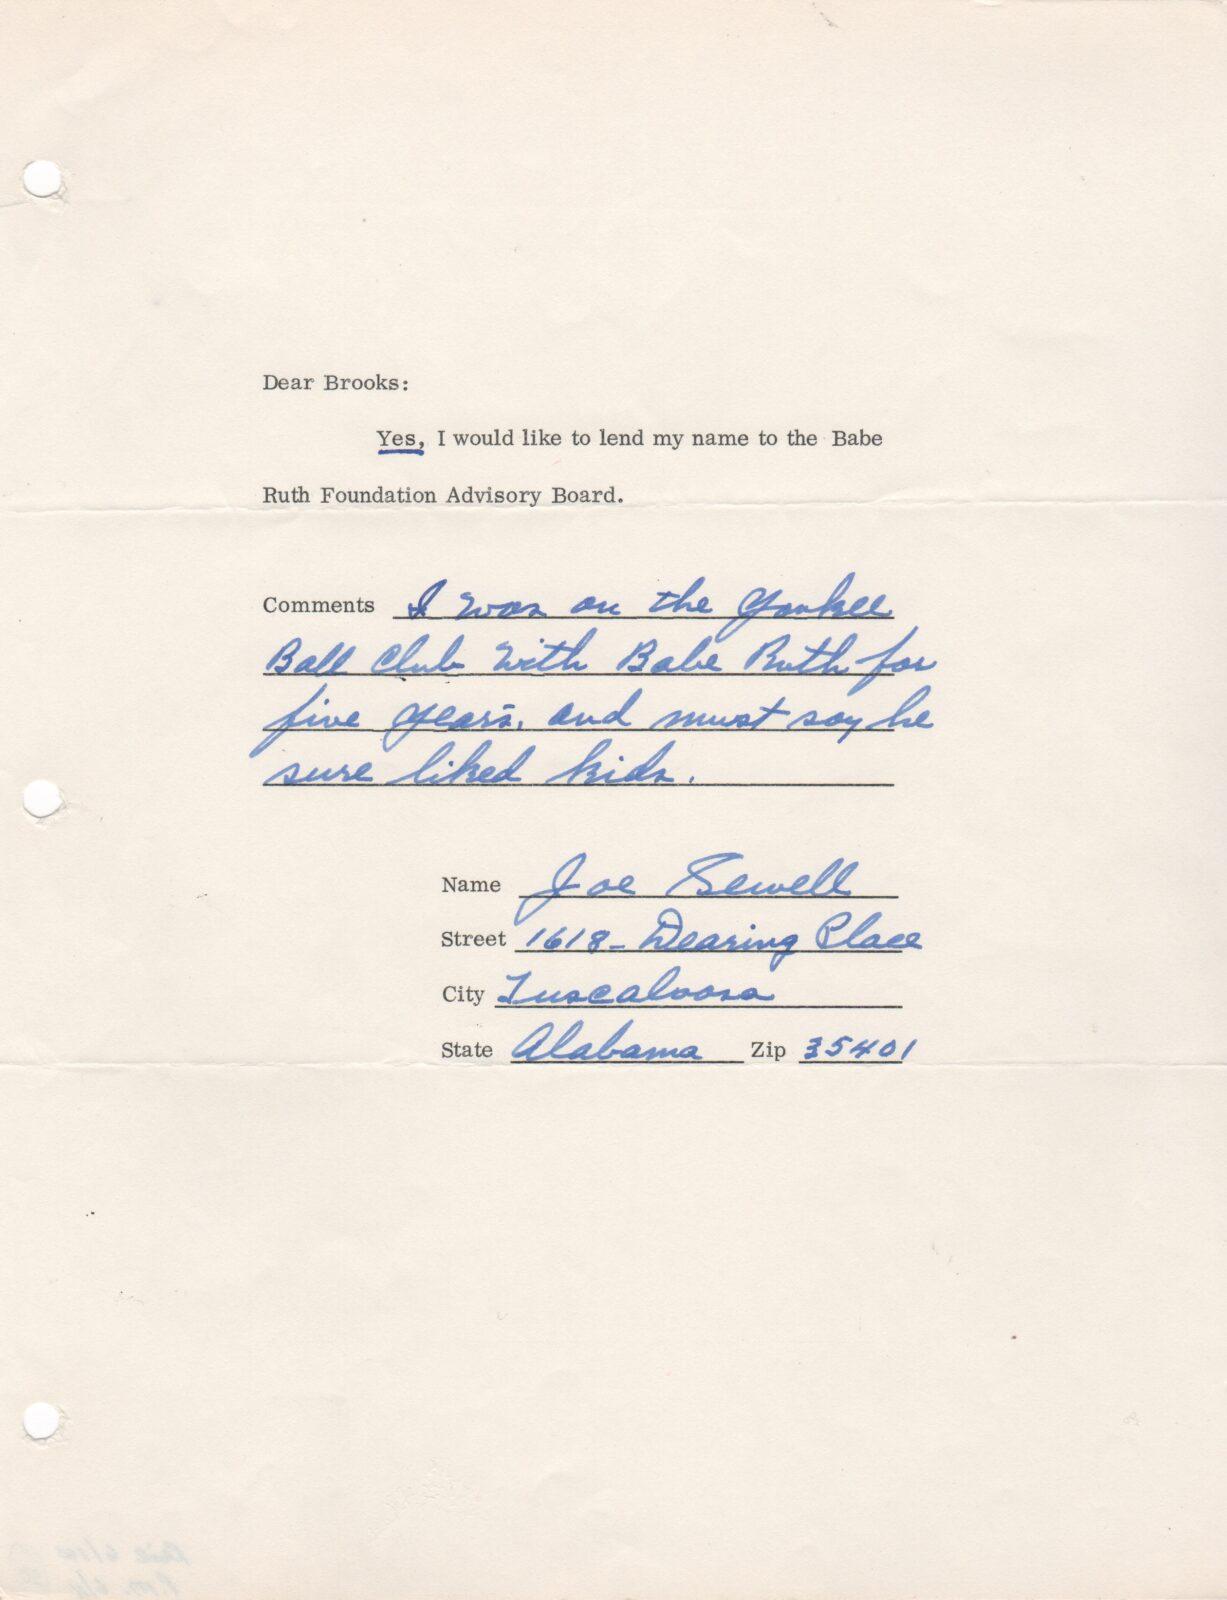 Dear Brooks:
Yes, I would like to lend my name to the Babe
Ruth Foundation Advisory Board.
Comments I was on the Yankee
Ball Club with Babe Ruth for
five years, and must say he
sure liked kids.
Name Joe Sewell
Street 1618- Dearing Place
City Tuscaloosa
State Alabama Zip 35401